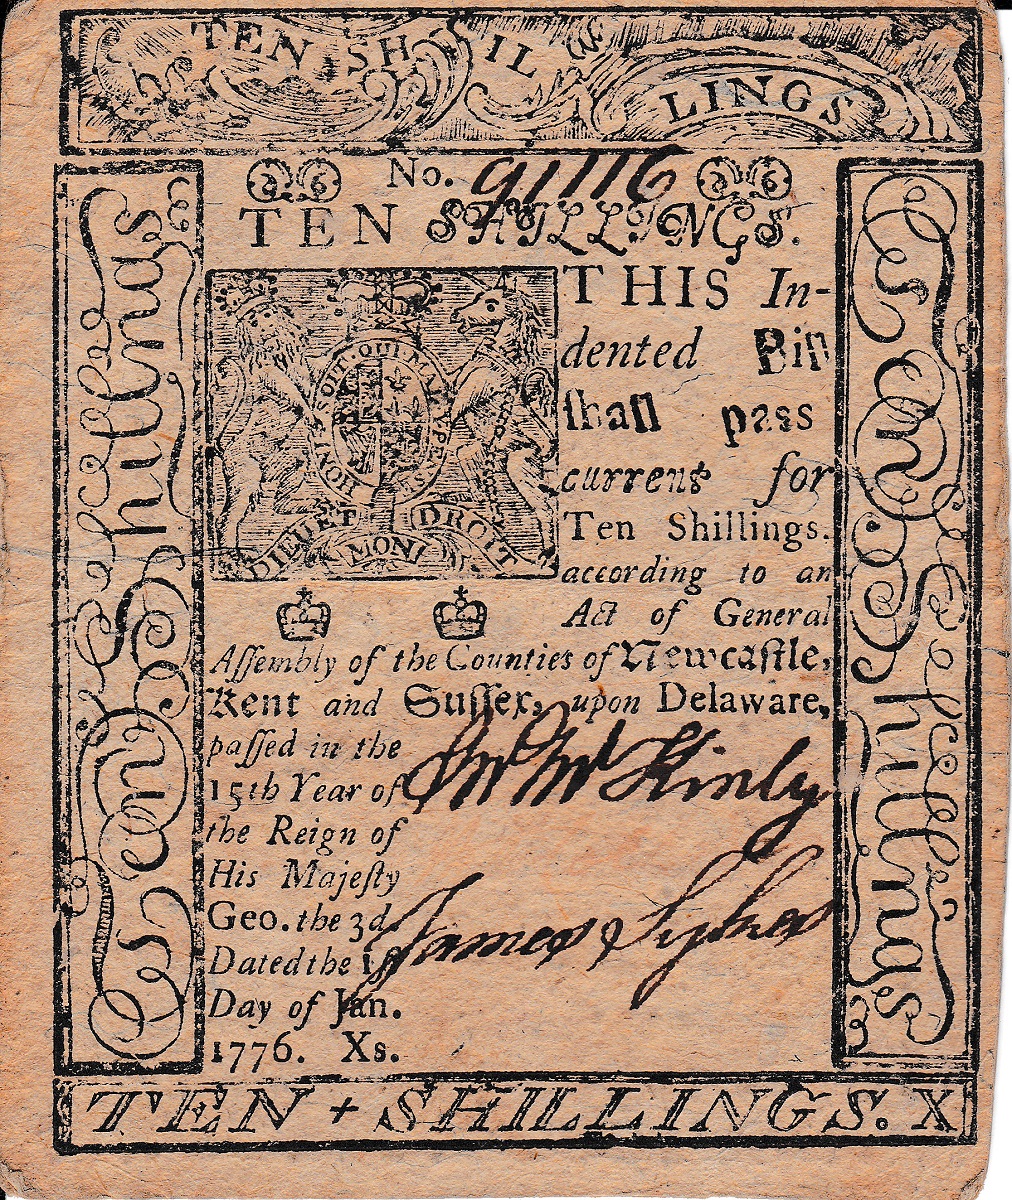 TEN SHIL LINGS
No. 91116
TEN SHILLINGS.
THIS In-
dented Bill
ſhall pass
current for
Ten Shillings.
according to an
Act of General
Aſſembly of the Counties of Newcaſtle,
Kent and Suſſex, upon Delaware,
paſſed in the
15th Year of
the Reign of
His Majeſty
Geo. the 3d
Dated the 1ſt
Day of Jan.
1776. Xs.
HONI SOIT QUI MAL Y PENSE
DIEU ET MON DROIT
Jno McKinly
James Sykes
Ten Shillings
Ten Shillings
TEN + SHILLINGS. X